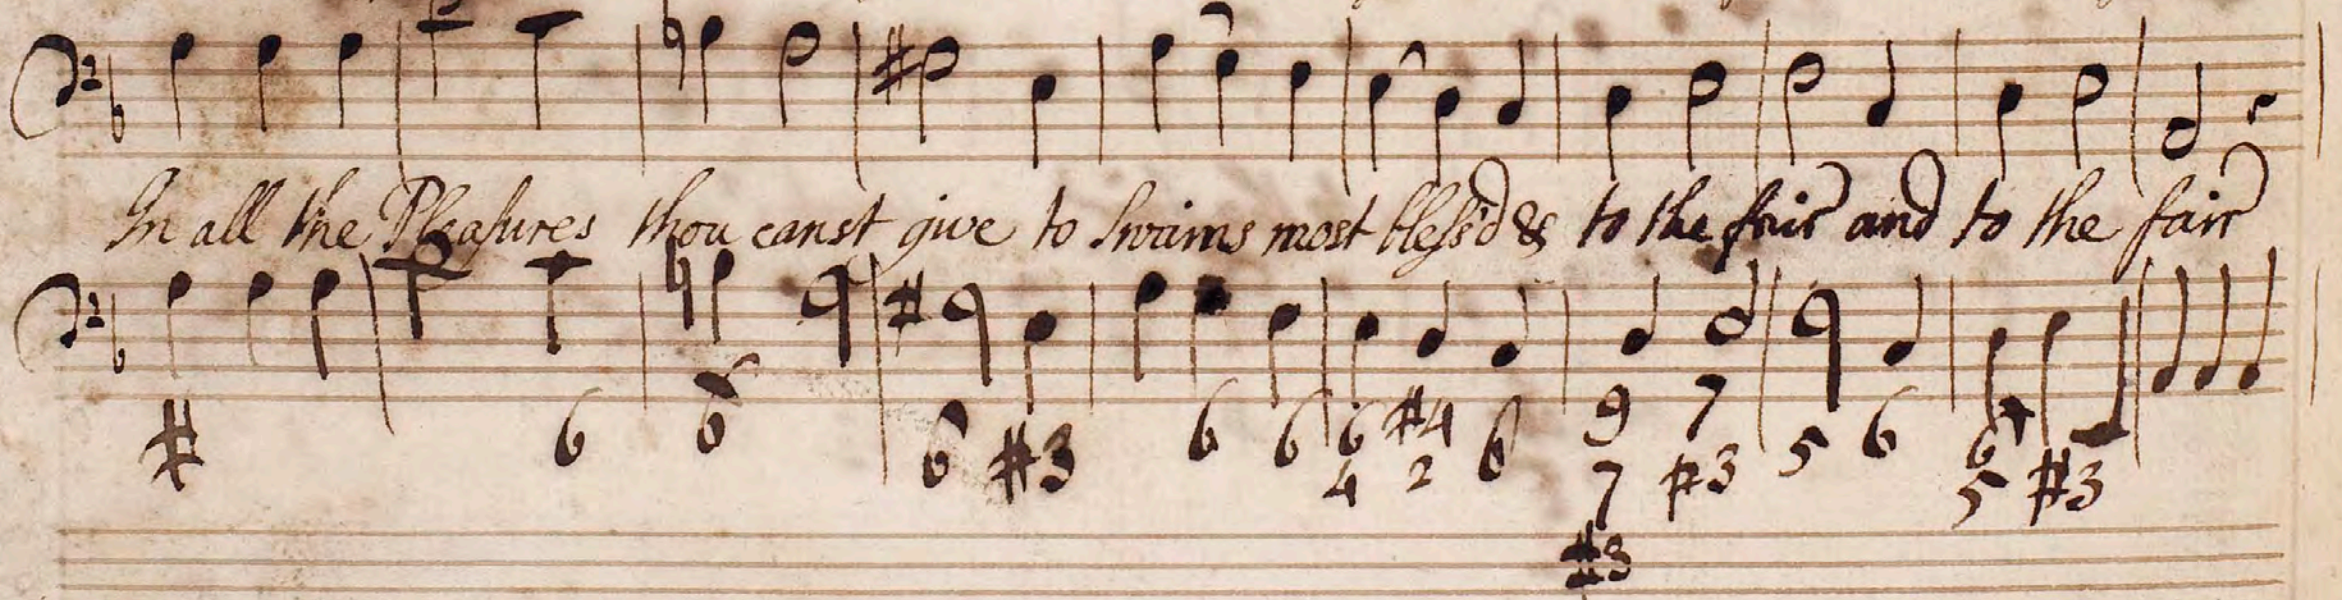 In all the Pleasures thou canst give to Swains most bless'd & to the fair and to the fair
# 6 6 6 #3 6 6 6 #4 6 9 7 5 6 6 #3
4 2 7 #3 5
#3